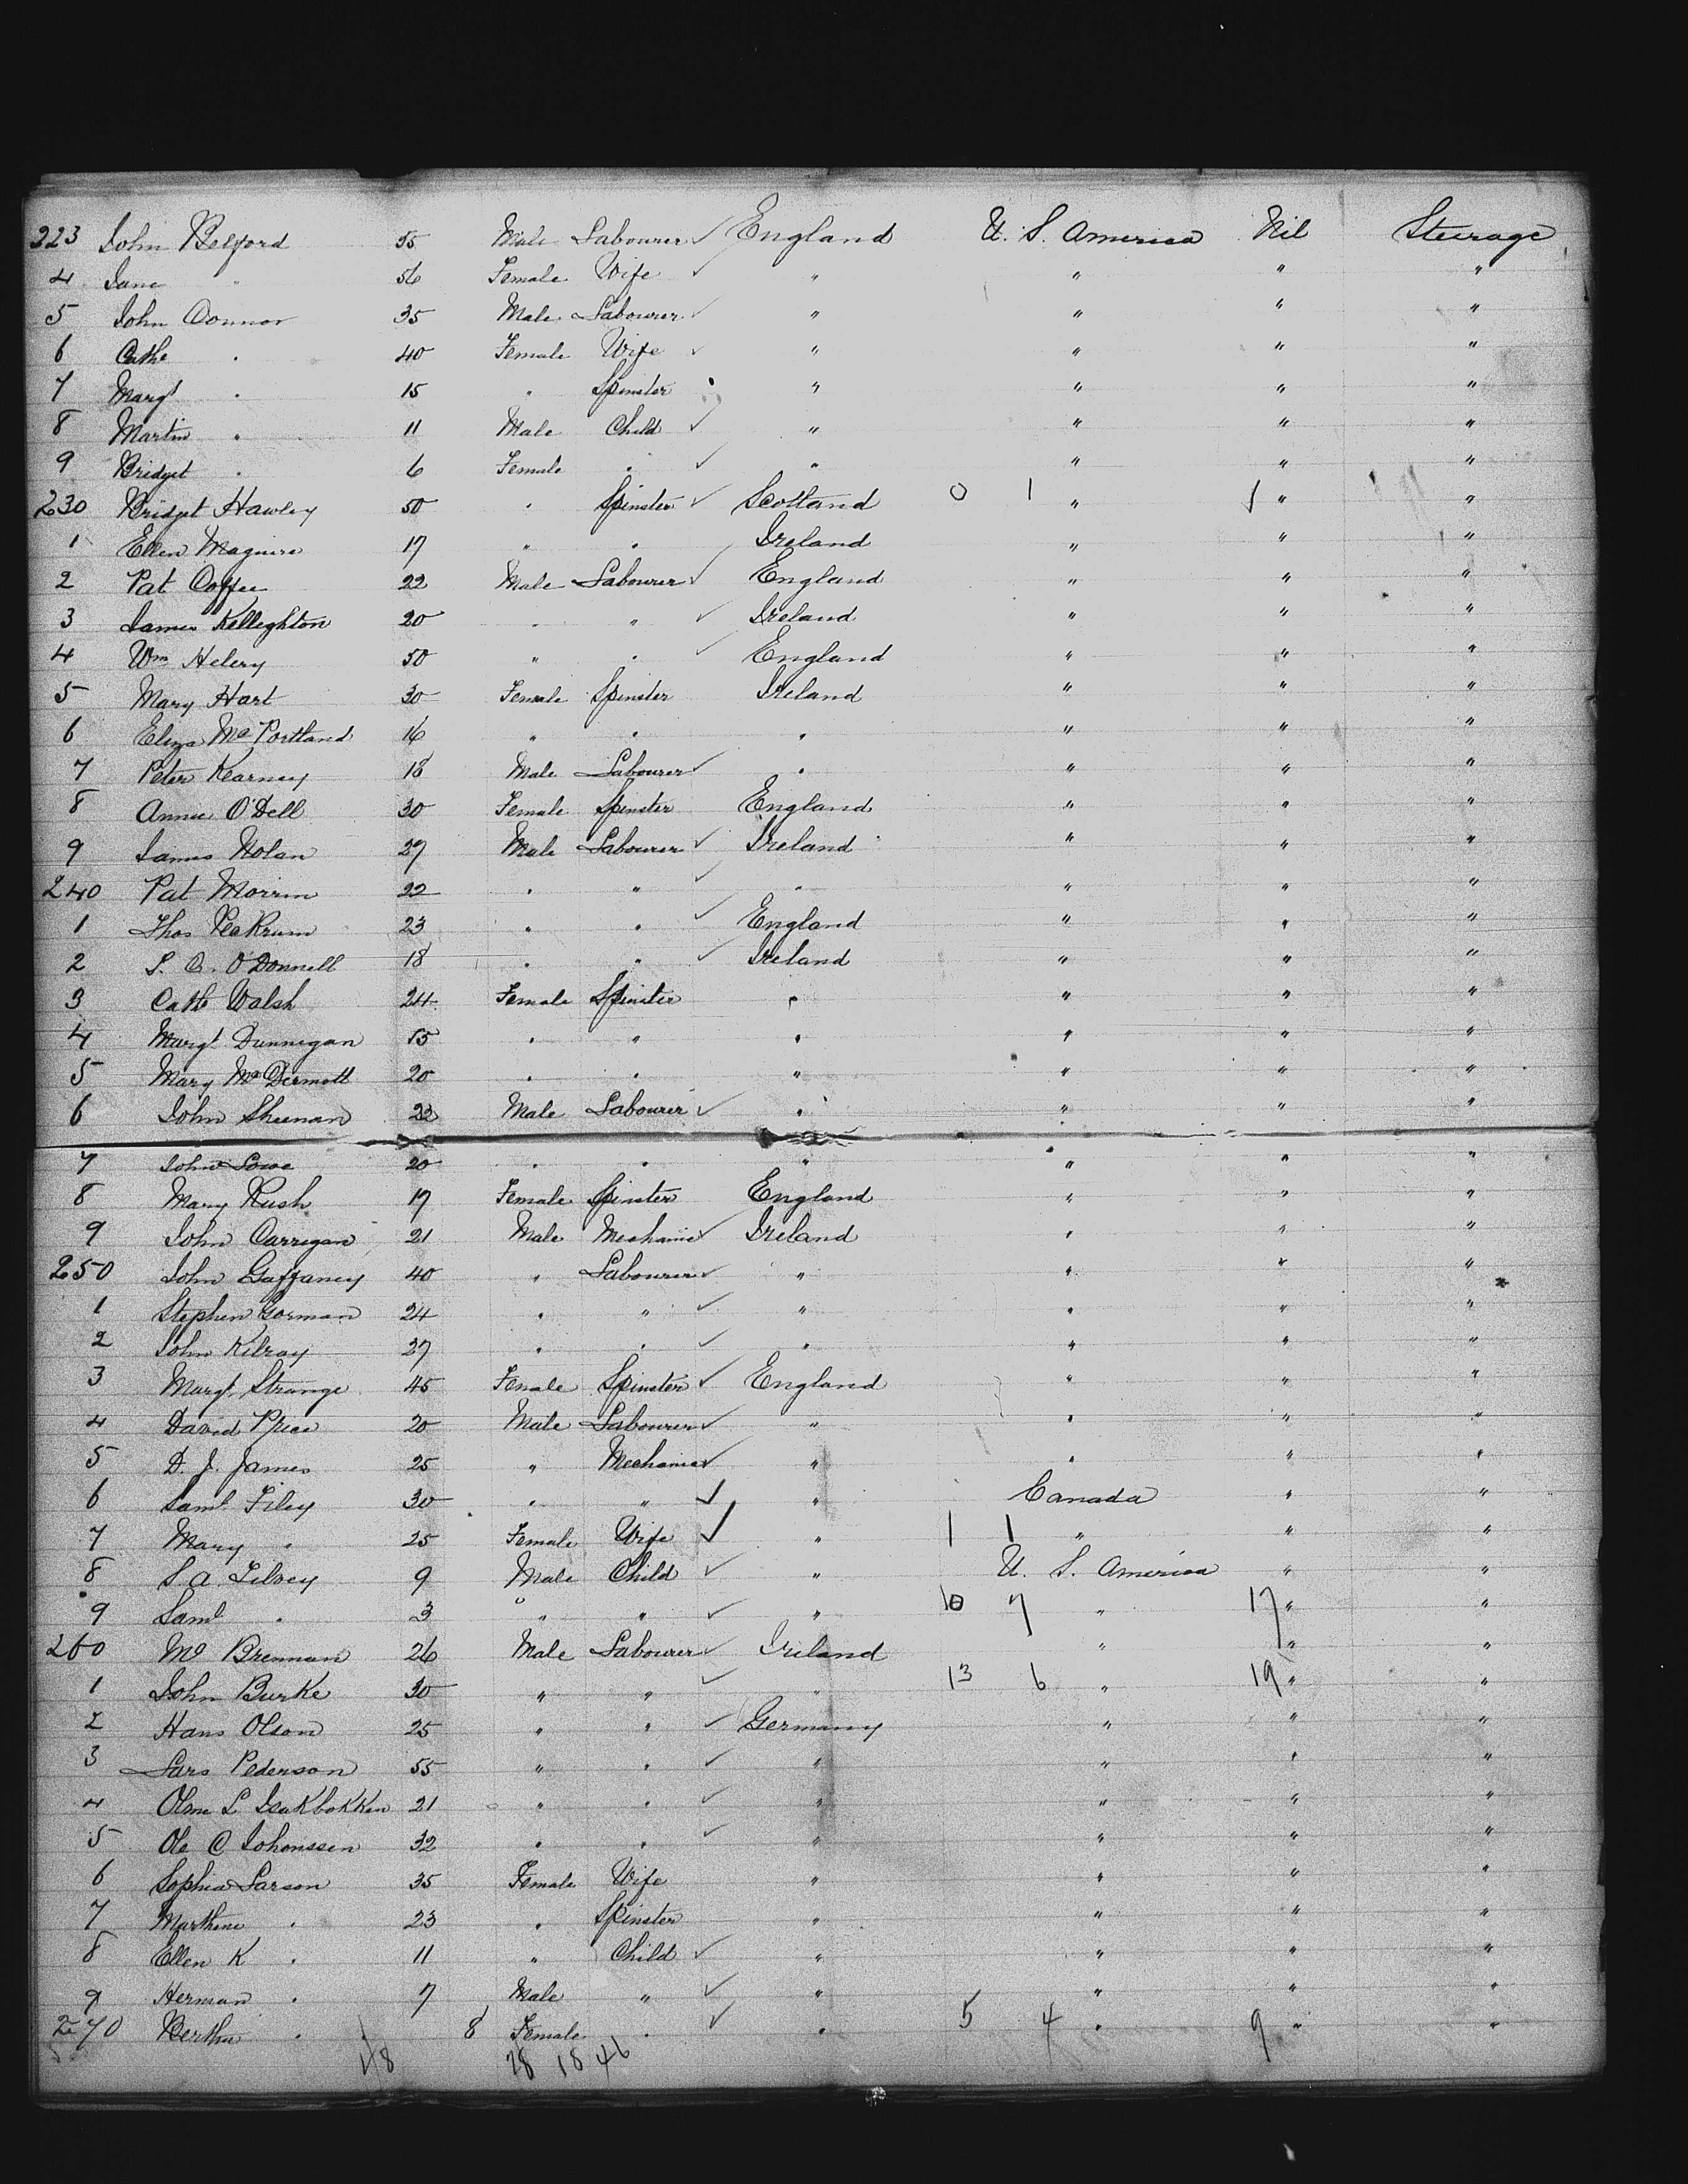 223 John Belford 55 Male Labourer ✓ England U. S. America Nil Steerage
4 Jane " 56 Female Wife ✓ " " " "
5 John Connor 35 Male Labourer ✓ " " " "
6 Cathe " 40 Female Wife ✓ " " " "
7 Margt " 15 " Spinster " " " "
8 Martin " 11 Male Child ✓ " " " "
9 Bridget " 6 Female " ✓ " " " "
230 Bridget Hawley 50 " Spinster ✓ Scotland 0 1 " 1 " "
1 Ellen Maguire 17 " " Ireland " " "
2 Pat Coffee 22 Male Labourer ✓ England " " "
3 James Kelleghton 20 " " ✓ Ireland " " "
4 Wm Helery 50 " " ✓ England " " "
5 Mary Hart 30 Female Spinster Ireland " " "
6 Eliza McPortland 16 " " " " " "
7 Peter Kearney 18 Male Labourer ✓ " " " "
8 Annie O'Dell 30 Female Spinster England " " "
9 James Nolan 27 Male Labourer ✓ Ireland " " "
240 Pat Morrin 22 " " ✓ " " " "
1 Thos 23 " " ✓ England " " "
2 O'Donnell 18 " " ✓ Ireland " " "
3 Cath Walsh 24 Female Spinster " " " "
4 Margt Dunnegan " " " " " "
5 Mary McDermott 20 " " " " " "
6 John Sheenan 22 Male Labourer ✓ " " " "
7 John Lowe 20 " " " " " "
8 Mary Rush 17 Female Spinster England " " "
9 John Carrigan 21 Male Mechanic ✓ Ireland " " "
250 John Gaffaney 40 " Labourer ✓ " " " "
1 Stephen Gorman 24 " " ✓ " " " "
2 John Kilroy 27 " " ✓ " " " "
3 Margt Strange 45 Female Spinster ✓ England " " "
4 David Price 20 Male Labourer ✓ " " " "
5 D. J. James 25 " Mechanic ✓ " " " "
6 Saml Filey 30 " " ✓ " Canada " "
7 Mary " 25 Female Wife ✓ " 1 1 " " "
8 S. A. 9 Male Child ✓ " U. S. America " "
9 Saml " 3 " " ✓ " 10 7 " 17 " "
260 Brennan 26 Male Labourer ✓ Ireland " " "
1 John Burke 30 " " ✓ " 13 6 " 19 " "
2 Hans Olson 25 " " ✓ Germany " " "
3 Lars Pederson 55 " " ✓ " " " "
4 21 " " ✓ " " " "
5 Ole C Johanssen 32 " " ✓ " " " "
6 Sophia Larson 35 Female Wife " " " "
7 Marthene " 23 " Spinster " " " "
8 Ellen K " 11 " Child ✓ " " " "
9 Herman " 7 Male " ✓ " " " "
270 Bertha " 8 Female " ✓ " 5 4 " 9 " "
48 28 18 46